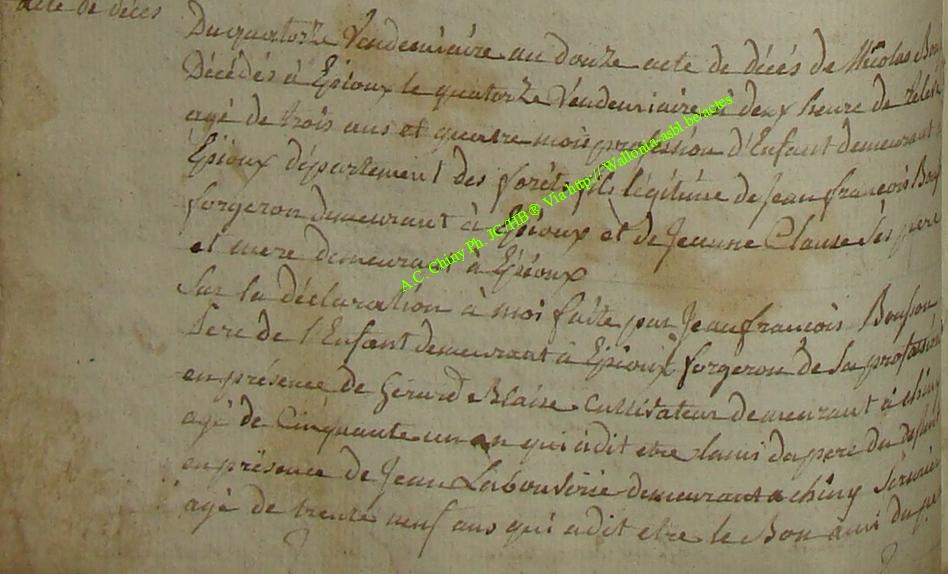 acte de décès
Du quatorze Vendemiaire an douze acte de décès de Nicolas
Décédés à Epioux le quatorze Vendemiaire à deux heure de
agé de trois ans et quatre mois profession d'Enfant demeurant
Epioux département des forêts fils légitime de jean françois
forgeron demeurant à Epioux et de Jeanne Clause Ses pere
et mere demeurant à Epioux
Sur la déclaration à moi faite par Jean françois Bouson
Pere de l'Enfant demeurant à Epioux forgeron de Sa profession
en présence de Gérard Blaise Cultivateur demeurant à chiny
agé de Cinquante un an qui à dit etre lami du pere du
en présence de Jean demeurant a chiny
agé de trente neuf ans qui a dit etre le Bon ami du
A.C. Chiny Ph. JC/HB ® Via http://Wallonia-asbl.be/actes